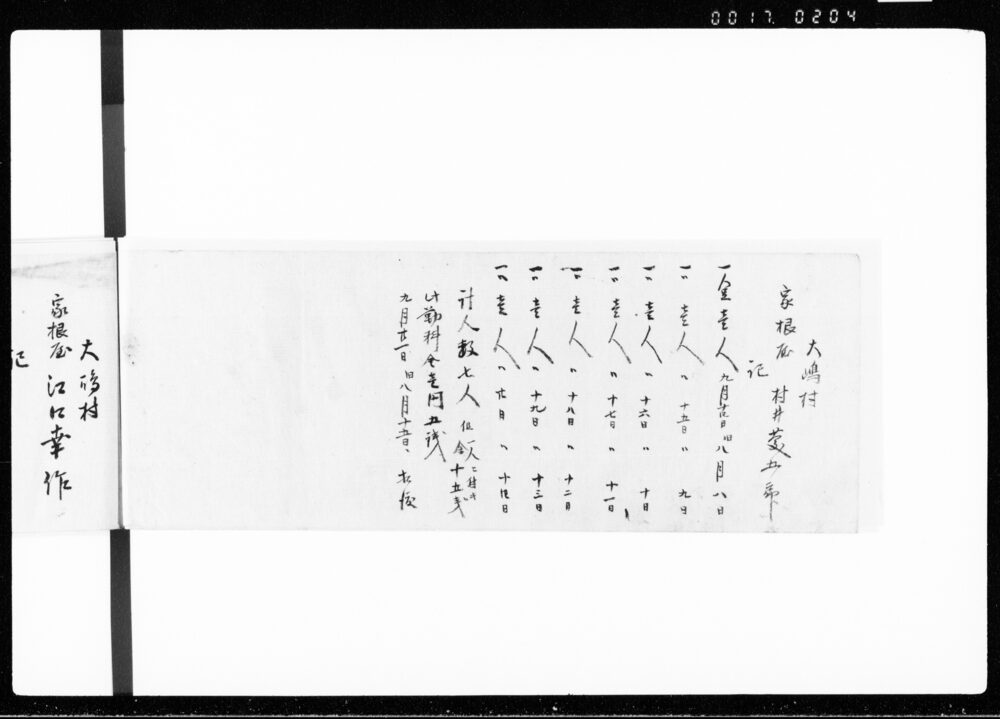 0017. 0204
大嶋村
家根屋 村井菱五郎
記
一金壱人 九月十四日 旧八月八日
一〃壱人 〃十五日〃 九日
一〃壱人 〃十六日〃 十日
一〃壱人 〃十七日〃 十一日
一〃壱人 〃十八日〃 十二日
一〃壱人 〃十九日〃 十三日
一〃壱人 〃廿日〃 十四日
計人数七人 但一人ニ付キ金十五戋
此勤料金壱円五戋
九月廿一日 旧八月十五日
大嶋村
家根屋 江口幸作
記